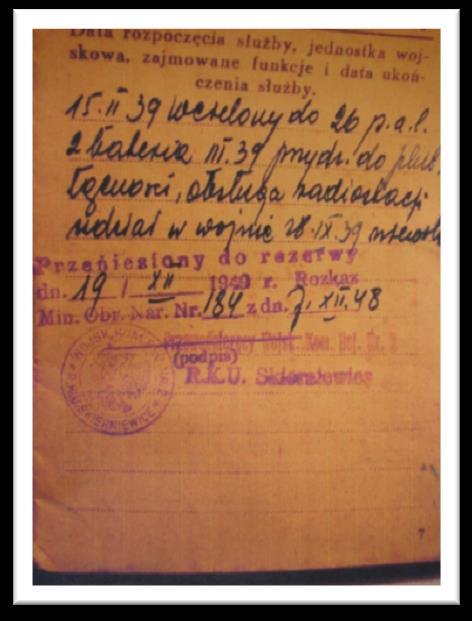 Data rozpoczęcia służby, jednostka woj-
skowa, zajmowane funkcje i data ukoń-
czenia służby.
15.II 39 wcielony do 26 p.a.l.
2 bateria III.39 przydz. do plut.
łączności, obsługa radiostacji
udział w wojnie 28.IX.39
Przeniesiony do rezerwy
dn. 19 / XII 1949 r. Rozkaz
Min. Obr. Nar. Nr. 184 z dn. 7.XII.48
Kom. Rej. Nr. 2
(podpis)
R.K.U. Skierniewice
SKIERNIEWICE
7